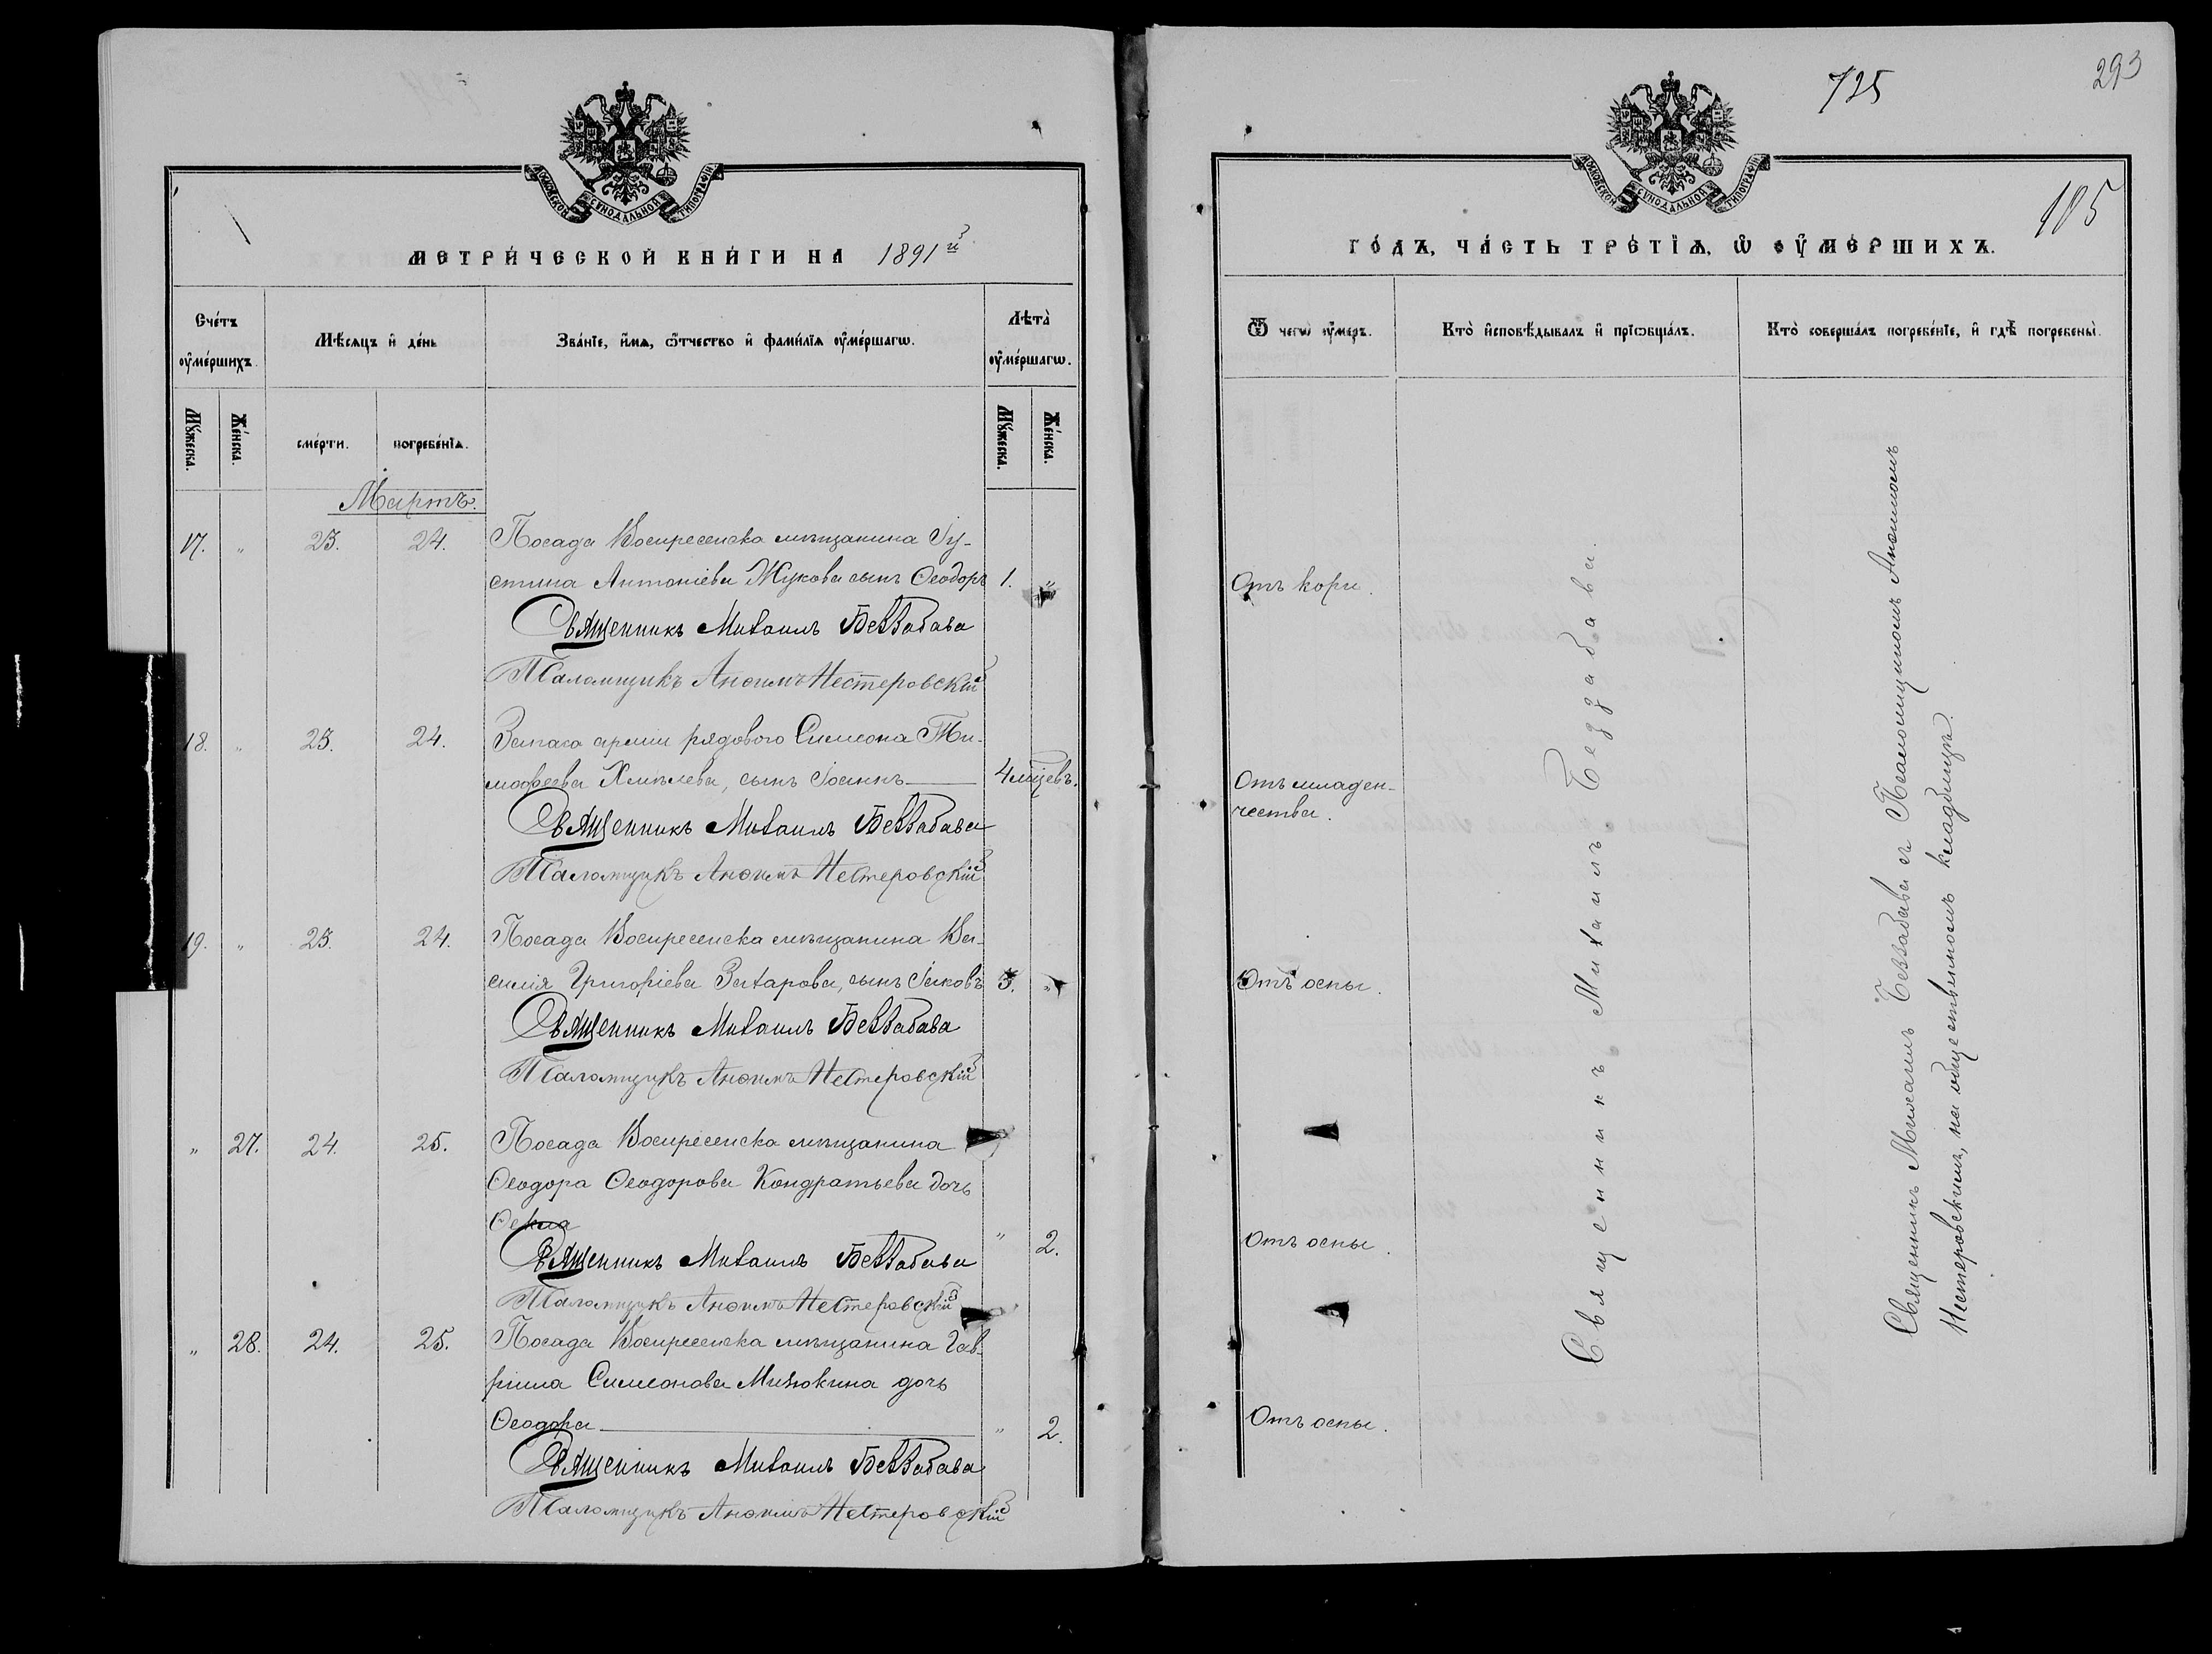 МОСКОВСКОЙ СѴНОДАЛЬНОЙ ТИПОГРАФІИ
МЕТРИ́ЧЕСКОЙ КНИ́ГИ НА 1891й
Сче́тъ ᲂу҆ме́ршихъ.
Мѣ́сѧцъ и҆ де́нь
Зва́нїе, и҆́мѧ, ѻ҆́тчество и҆ фами́лїѧ ᲂу҆ме́ршагѡ.
Лѣ̀та ᲂу҆ме́ршагѡ.
Мꙋ́жеска.
Же́нска.
сме́рти.
погребе́нїѧ.
Мꙋ́жеска.
Же́нска.
Мартъ.
17. " 23. 24. Посада Воскресенска мѣщанина Іу-
стина Антоніева Жукова сынъ Ѳеодоръ 1. "
Священникъ Михаилъ Беззабава
Псаломщикъ Анѳимъ Нестеровскій
18. " 23. 24. Запаса арміи рядового Симеона Ти-
мофеева Хмѣлева, сынъ Іоаннъ 4 мцевъ.
Священникъ Михаилъ Беззабава
Псаломщикъ Анѳимъ Нестеровскій
19. " 23. 24. Посада Воскресенска мѣщанина Ва-
силія Григоріева Захарова, сынъ Іаковъ 3. "
Священникъ Михаилъ Беззабава
Псаломщикъ Анѳимъ Нестеровскій
" 27. 24. 25. Посада Воскресенска мѣщанина
Ѳеодора Ѳеодорова Кондратьева дочь
Ѳекла " 2.
Священникъ Михаилъ Беззабава
Псаломщикъ Анѳимъ Нестеровскій
" 28. 24. 25. Посада Воскресенска мѣщанина Гав-
ріила Симеонова Мизюкина дочь
Ѳеодора " 2.
Священникъ Михаилъ Беззабава
Псаломщикъ Анѳимъ Нестеровскій
725
293
МОСКОВСКОЙ СѴНОДАЛЬНОЙ ТИПОГРАФІИ
185
ГО́ДЪ, ЧА́СТЬ ТРЕ́ТЇѦ, Ѡ҆ ᲂУ҆МЕ́РШИХЪ.
Ѿ чегѡ̀ ᲂу҆́меръ.
Кто̀ и҆сповѣ́дывалъ и҆ прїѡбща́лъ.
Кто̀ соверша́лъ погребе́нїе, и҆ гдѣ̀ погребены̀.
Отъ кори.
Отъ младен-
чества.
Отъ оспы.
Отъ оспы.
Отъ оспы.
Священникъ Михаилъ Беззабава.
Священникъ Михаилъ Беззабава съ Псаломщикомъ Анѳимомъ
Нестеровскимъ, на общественномъ кладбищѣ.